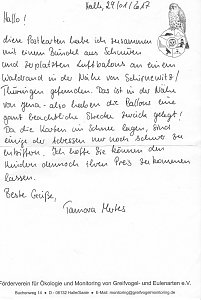 Halle, 29/01/2017
Hallo!
diese Postkarten habe ich zusammen
mit einem Bündel aus Schnüren
und zerplatzten Luftballons an einem
Waldrand in der Nähe von
Thüringen gefunden. Das ist in der Nähe
von Jena - also haben die Ballons eine
ganz beachtliche Strecke zurück gelegt!
Da die Karten im Schnee lagen, sind
einige der Adressen nur noch schwer zu
entziffern. Ich hoffe Sie können den
Kindern dennoch ihren Preis zukommen
lassen.
Beste Grüße,
Tamara
Förderverein für Ökologie und Monitoring von Greifvogel- und Eulenarten e.V.